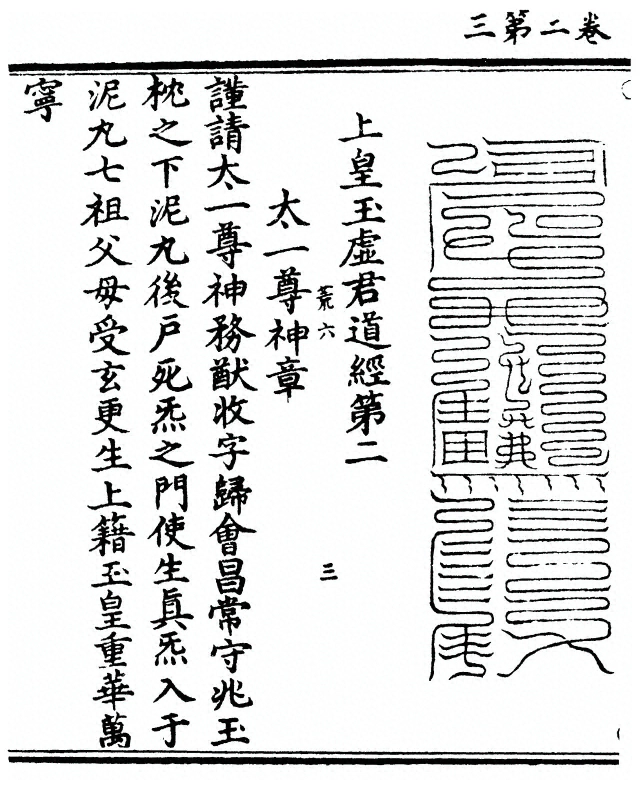 卷二第三
上皇玉虛君道經第二
太一尊神章
荒六
三
謹請太一尊神務猷收字歸會昌常守兆玉
枕之下泥丸後戶死炁之門使生真炁入于
泥丸七祖父母受玄更生上籍玉皇重華萬
寧